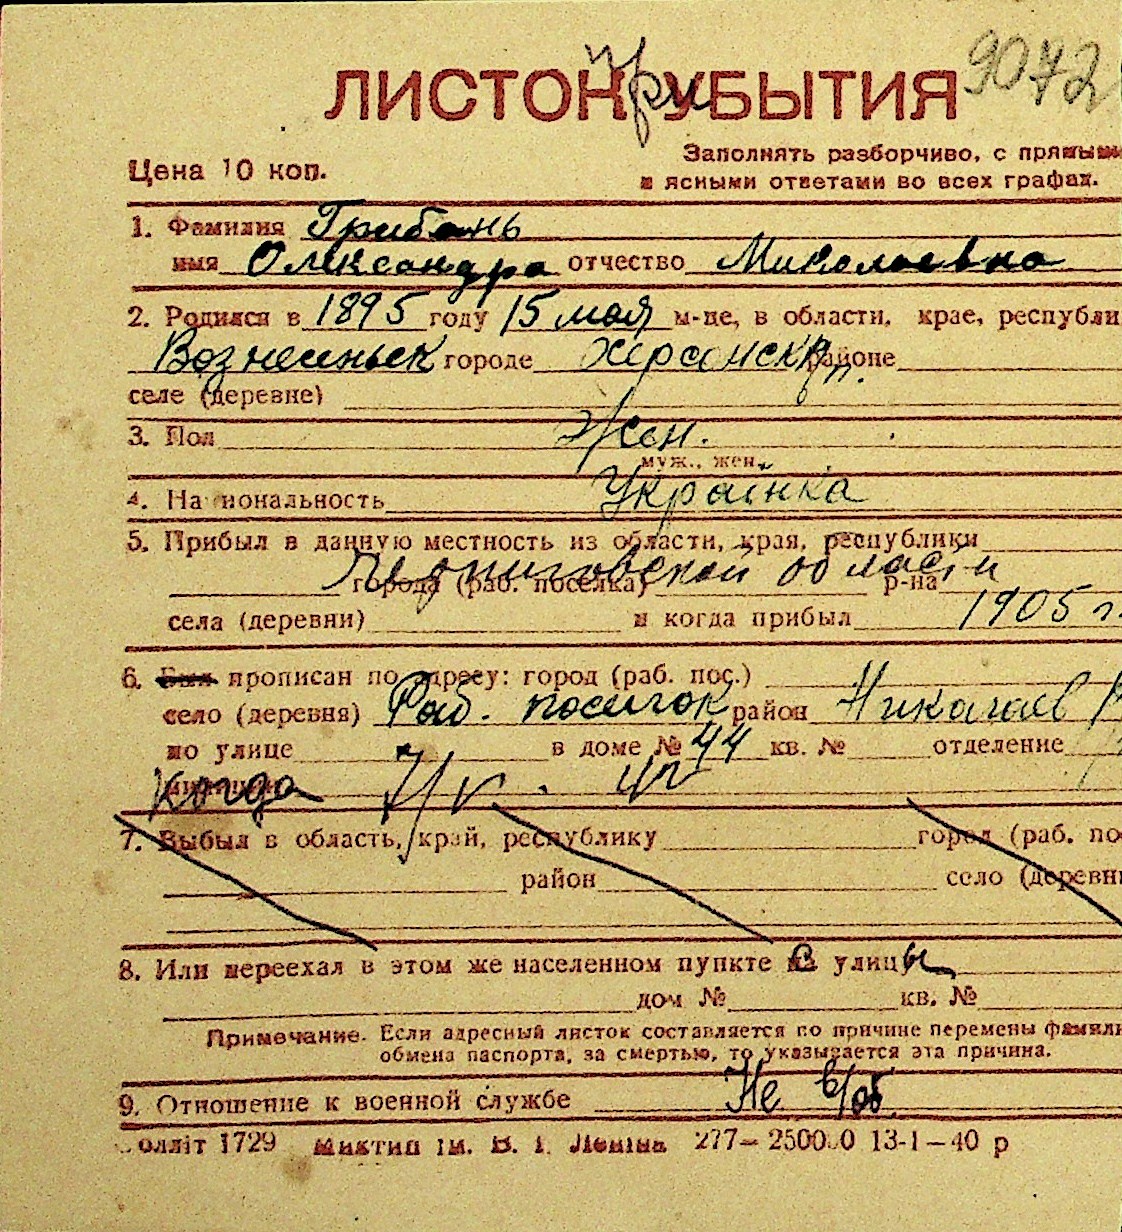 9072
ЛИСТОК при УБЫТИЯ
Цена 10 коп.
Заполнять разборчиво, с прямыми
и ясными ответами во всех графах.
1. Фамилия Грибань
имя Олександра отчество Миколаевна
2. Родился в 1895 году 15 мая м-це, в области, крае, республи
Вознесенськ городе Херсонск районе
селе (деревне)
3. Пол Жен.
муж., жен.
4. Национальность Українка
5. Прибыл в данную местность из области, края, республики
Черниговской области
города (раб. поселка) р-на
села (деревни) и когда прибыл 1905 г.
6. Был прописан по адресу: город (раб. пос.)
село (деревня) Раб. поселок район Николаев
по улице в доме № 44 кв. № отделение
милиции Когда
7. Выбыл в область, край, республику город (раб. по
район село (деревн
8. Или переехал в этом же населенном пункте с улицы
дом № кв. №
Примечание. Если адресный листок составляется по причине перемены фамили
обмена паспорта, за смертью, то указывается эта причина.
9. Отношение к военной службе Не в/об.
оллiт 1729 Миктип iм. В. I. Ленiна 277— 250000 13-1—40 р